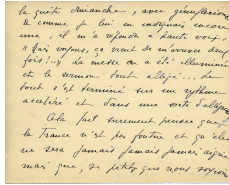 la quête dimanche, avec génuflexions,
et comme je lui en indiquais encore
une, il m'a répondu à haute voix :
"mais voyons, ça vient de m'arriver deux
fois!.." La messe en a été illuminée
et le sermon tout allégé... Le
tout s'est terminé sur un rythme
accéléré et dans une sorte d'allégresse
Cela fait surement penser que
la France n'est pas foutue et qu'elle
ne sera jamais jamais jamais
mais que, si petits que nous soyons